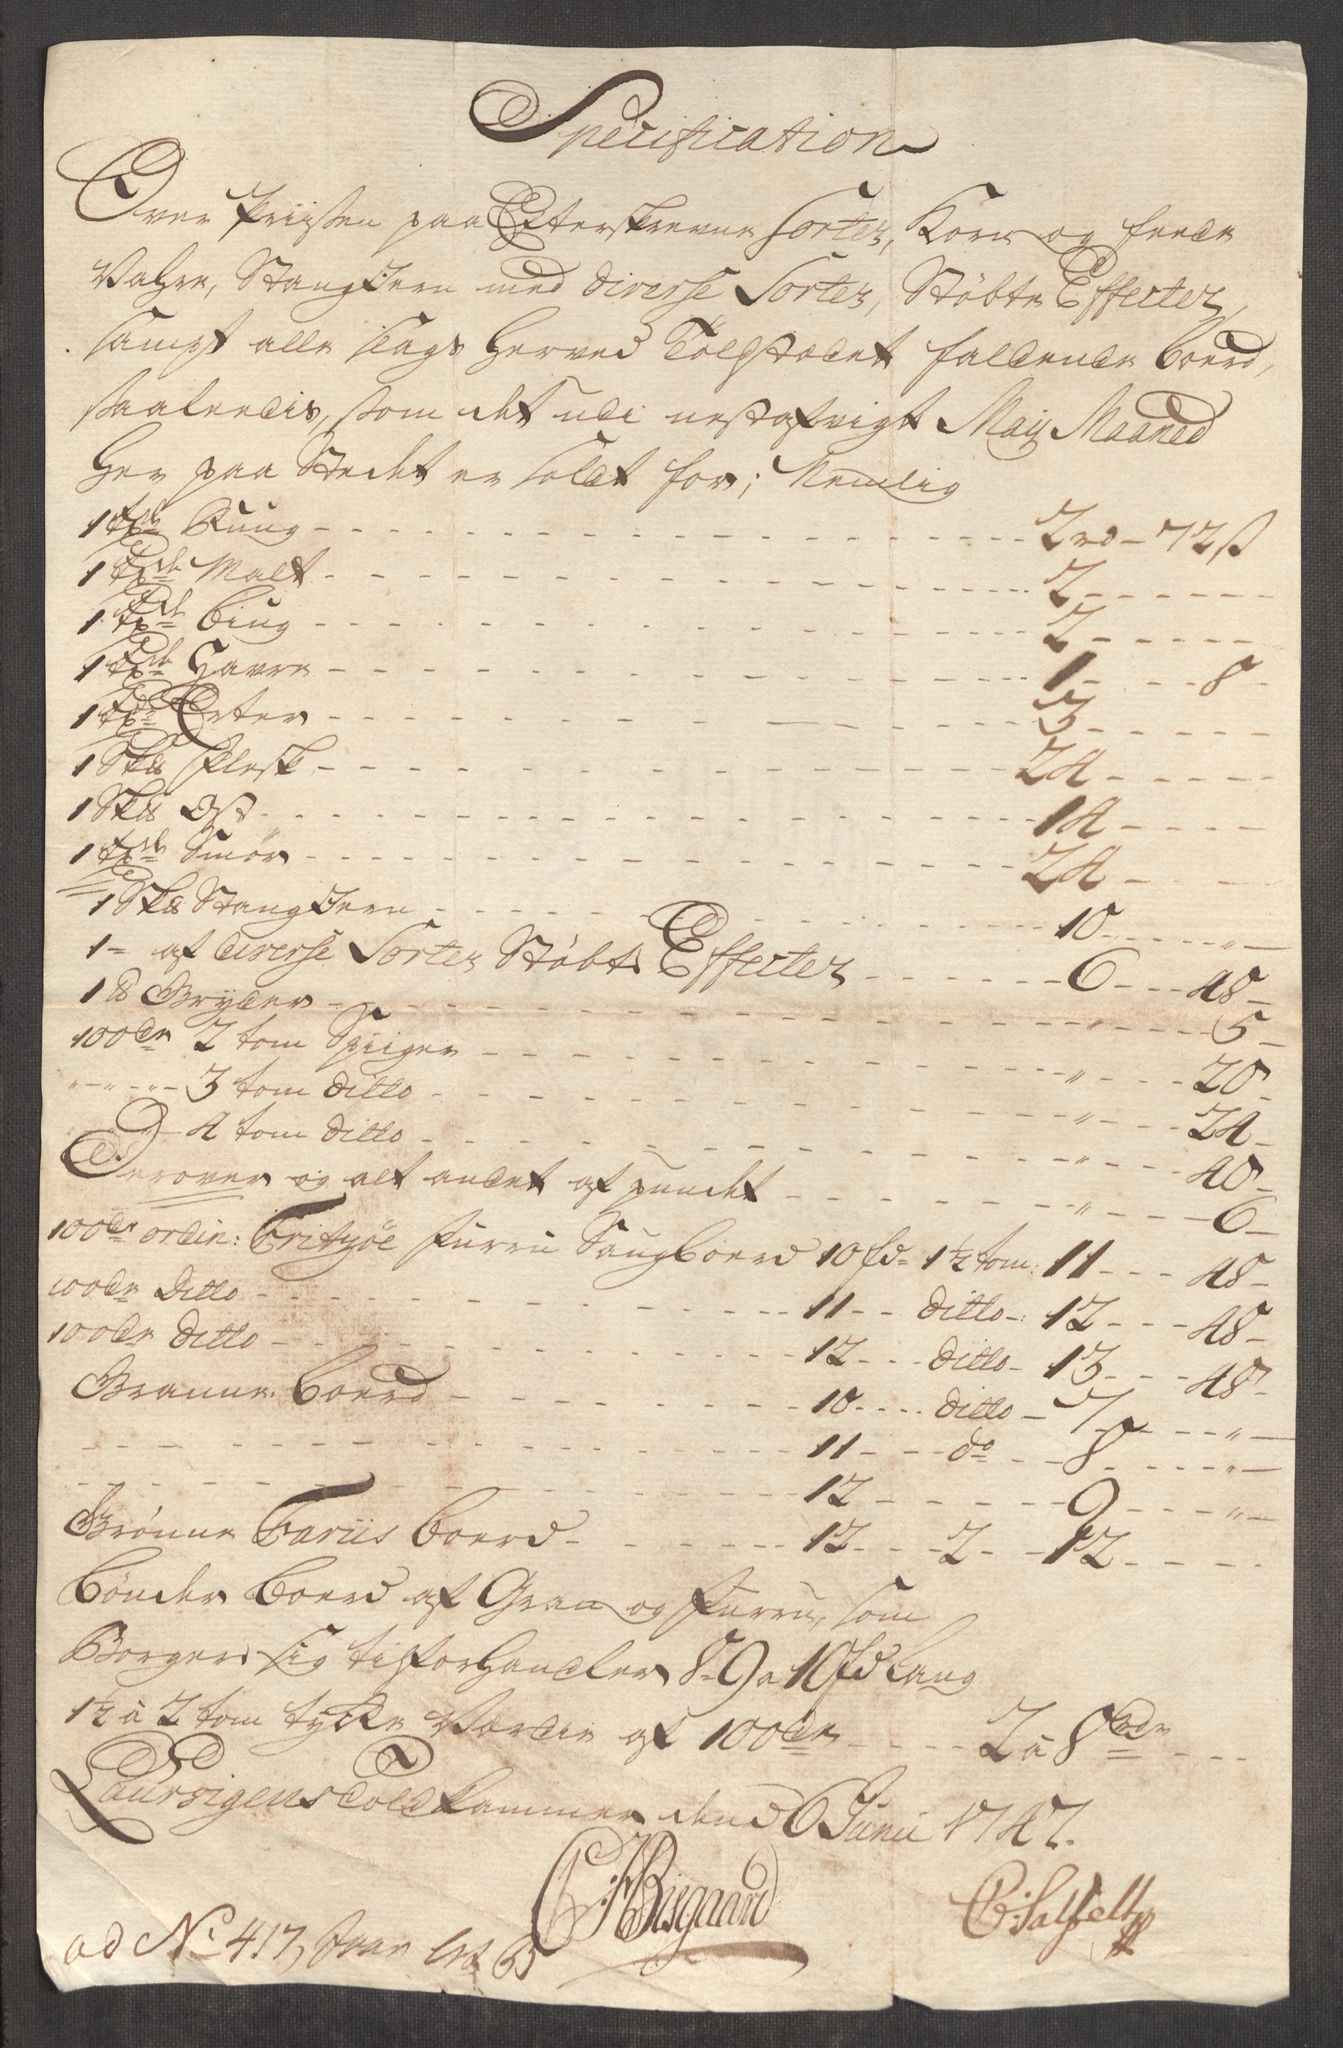 Specification
Over Priissen paa Efterskrevne Sorter, Korn og feede
Vahre, Stang Jern med diverse Sorter, Støbte Effecter,
sampt alle slags herved Toldstædet faldende boerd,
saaledis, som det udi nestafvigt Maij Maaned
her paa Stedet er soldt for; Nemlig
1 Tøde Ruug - - - 2 rd - 72 ß
1 Tøde Malt - - - 2 - - -
1 Tøde biug - - - 2 - - -
1 Tøde Havre - - - 1 - - 8 -
1 Tøde Erter - - - 3 - - -
1 Sk℔ Flesk - - - 24 - - -
1 Sk℔ Ost - - - 14 - - -
1 Tøde Smør - - - 24 - - -
1 Sk℔ Stang Jern - - - 10 - - " -
1 = af diverse Sorter Støbte Effecter - - - 6 - - 48 -
1 ℔ Gryder - - - " - - 5 -
100de 2 tom Spiiger - - - " - - 20 -
" - " - " - 3 tom ditto - - - " - - 24 -
4 tom ditto - - - " - - 40 -
Derover og alt andet af pundet - - - " - - 6 -
100de ordin: Fritzøe Furru Saugboerd 10 fd = 1½ tom: 11 - - 48 -
100de Ditto - - - 11 - - ditto -: 12 - - 48 -
100de ditto - - - 12 - - ditto - 13 - - 48 -
Granne boerd - - - 10 - - ditto - 7 - - " -
- - - 11 - - do - - 8 - - " -
- - - 12 - - - 9 - - " -
Grønne Fariis boerd - - - 12 - - 2 - - 12 - - -
bønder boerd af Gran og Furru, som
Borger sig tilforhandler 8 = 9 a 10 fd lang
1½ à 2 tom tykke Værdie af 100de - - - 2 à 8 rdr - - -
Laurvigens Toldkammer dend 6 Junii 1747.
C: H Bisgaard C: Salfeldt
ad No 417, Svar